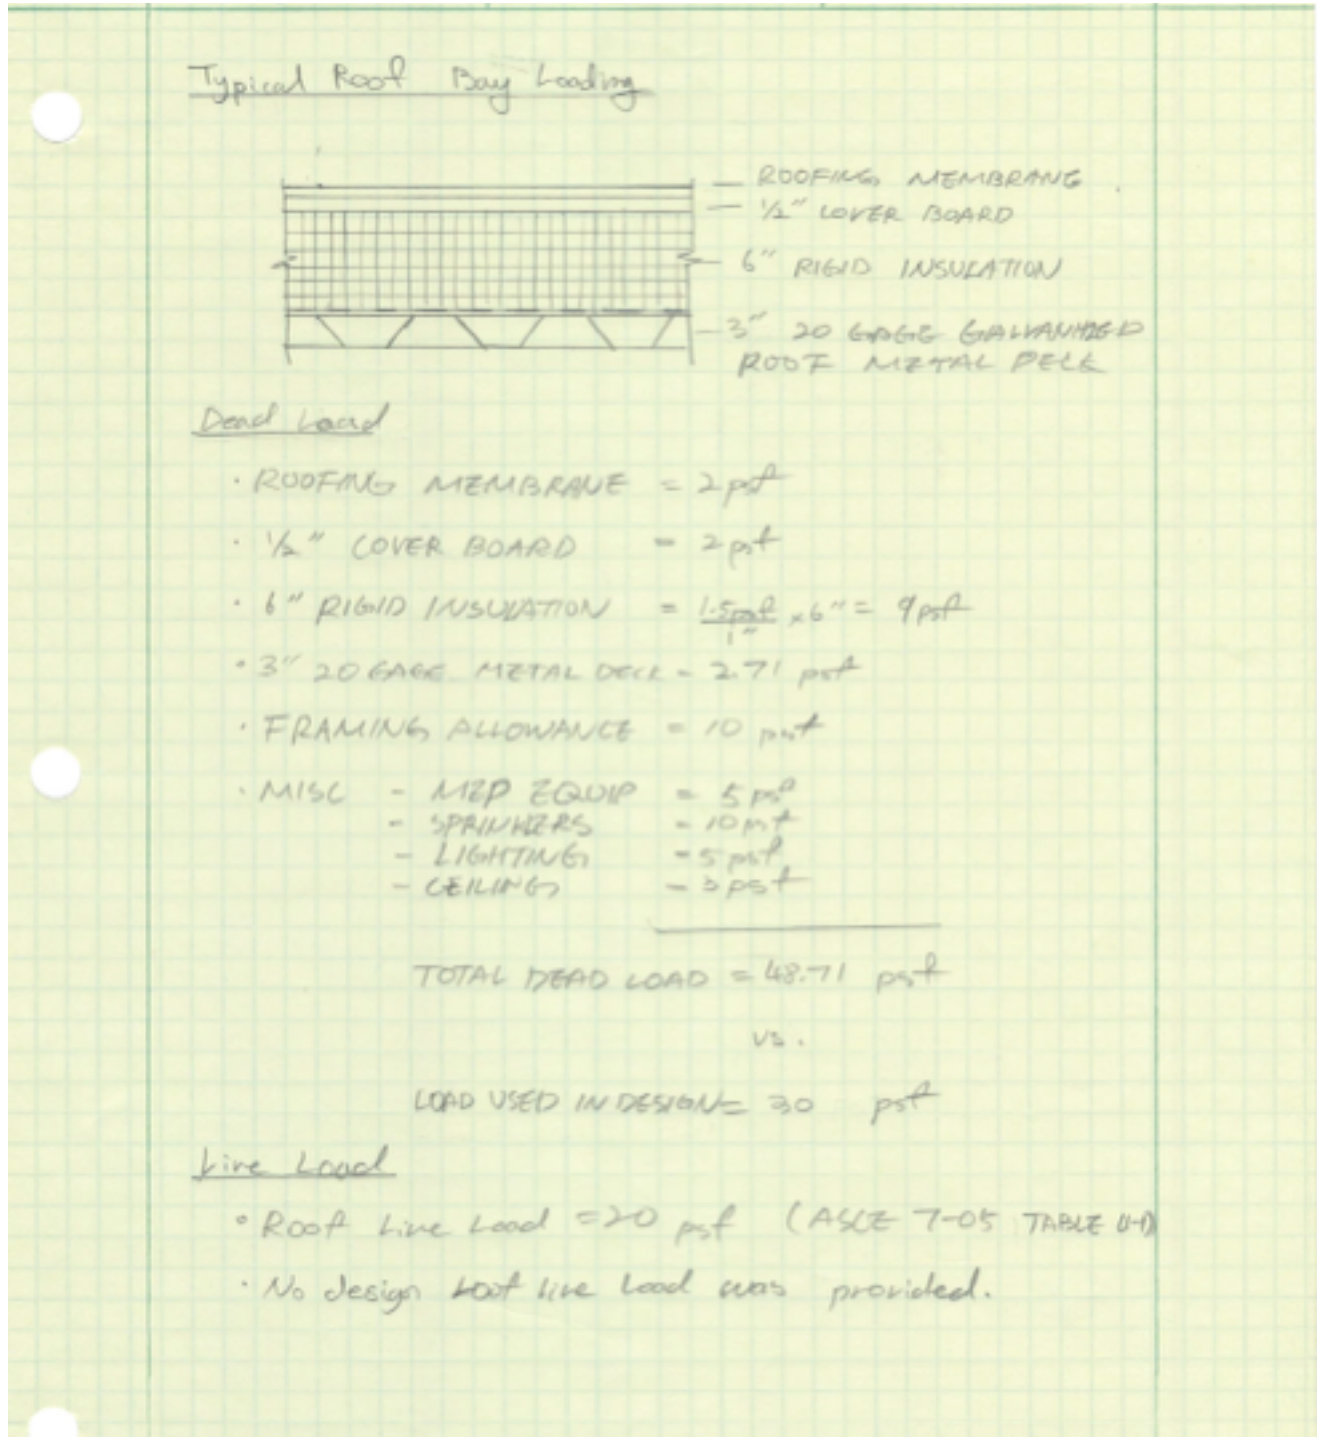 Typical Roof Bay Loading
ROOFING MEMBRANE
1/2" COVER BOARD
6" RIGID INSULATION
3" 20 GAGE GALVANIZED
ROOF METAL DECK
Dead Load
· ROOFING MEMBRANE = 2 psf
· 1/2" COVER BOARD = 2 psf
· 6" RIGID INSULATION = 1.5psf/1" x 6" = 9 psf
· 3" 20 GAGE METAL DECK = 2.71 psf
· FRAMING ALLOWANCE = 10 psf
· MISC - MEP EQUIP = 5 psf
- SPRINKLERS = 10 psf
- LIGHTING = 5 psf
- CEILINGS = 3 psf
TOTAL DEAD LOAD = 48.71 psf
vs.
LOAD USED IN DESIGN = 30 psf
Live Load
· Roof Live Load = 20 psf (ASCE 7-05 TABLE 4-1)
· No design roof live load was provided.